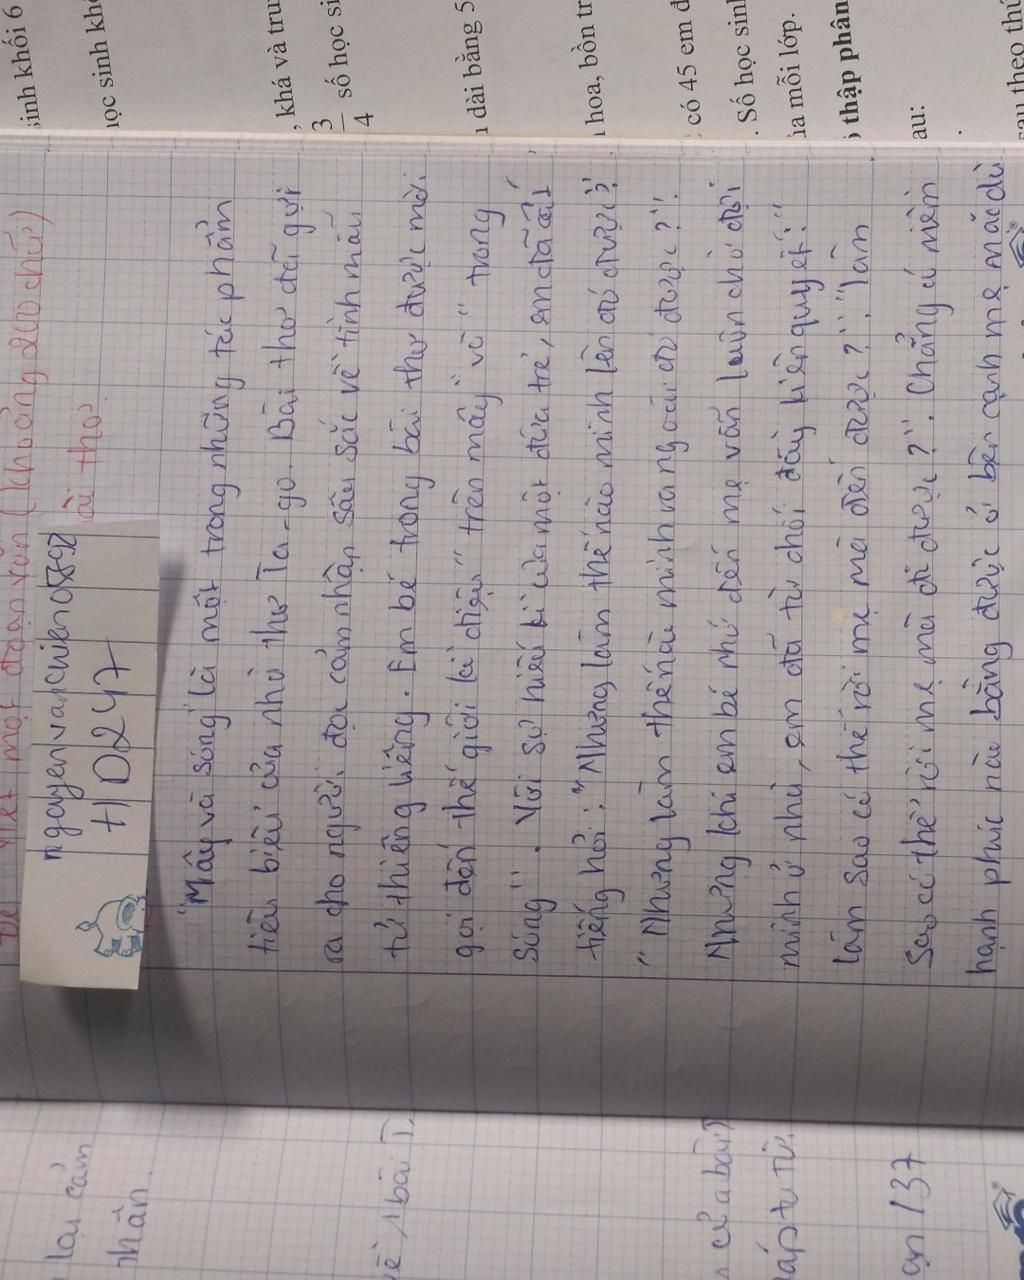 Đề viết một đoạn văn (khoảng 200 chữ)
bài thơ.
nguyenvanchien0892
HD247
"Mây và sóng" là một trong những tác phẩm
tiêu biểu của nhà thơ Ta-go. Bài thơ đã gửi
ra cho người đọc cảm nhập sâu sắc về tình mẫu
tử thiêng liêng. Em bé trong bài thơ được mời
gọi đến thế giới kì diệu "trên mây" và "trong
sóng". Với sự hiếu kì của một đứa trẻ, em đã cất
tiếng hỏi: "Nhưng làm thế nào mình lên đó được?"
"Nhưng làm thế nào mình ra ngoài đó được?".
Nhưng khi em bé nhớ đến mẹ vẫn luôn chờ đợi
mình ở nhà, em đã từ chối đầy kiên quyết: "
làm sao có thể rời mẹ mà đến được?", "làm
sao có thể rời mẹ mà đi được?". Chẳng có niềm
hạnh phúc nào bằng được ở bên cạnh mẹ mặc dù
sinh khối 6
học sinh kh
, khá và tru
3/4 số học si
dài bằng 5
hoa, bồn tr
có 45 em đ
. Số học sinh
ủa mỗi lớp.
thập phân
au:
sau theo thứ
lại cảm
nhân.
về 1 bài T.
của bài?
đáp từ Từ.
an 137